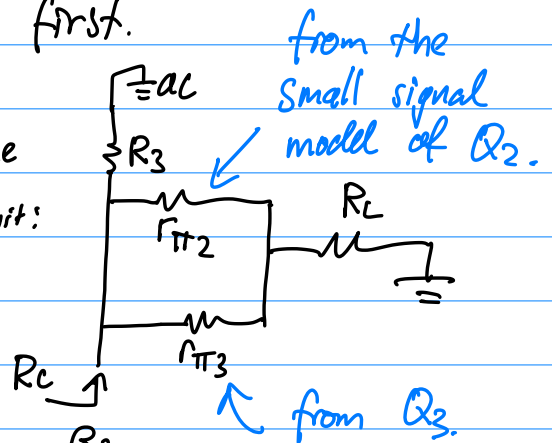 first.
from the
small signal
model of Q2.
ac
R3
rπ2
RL
rπ3
RC
from Q3.